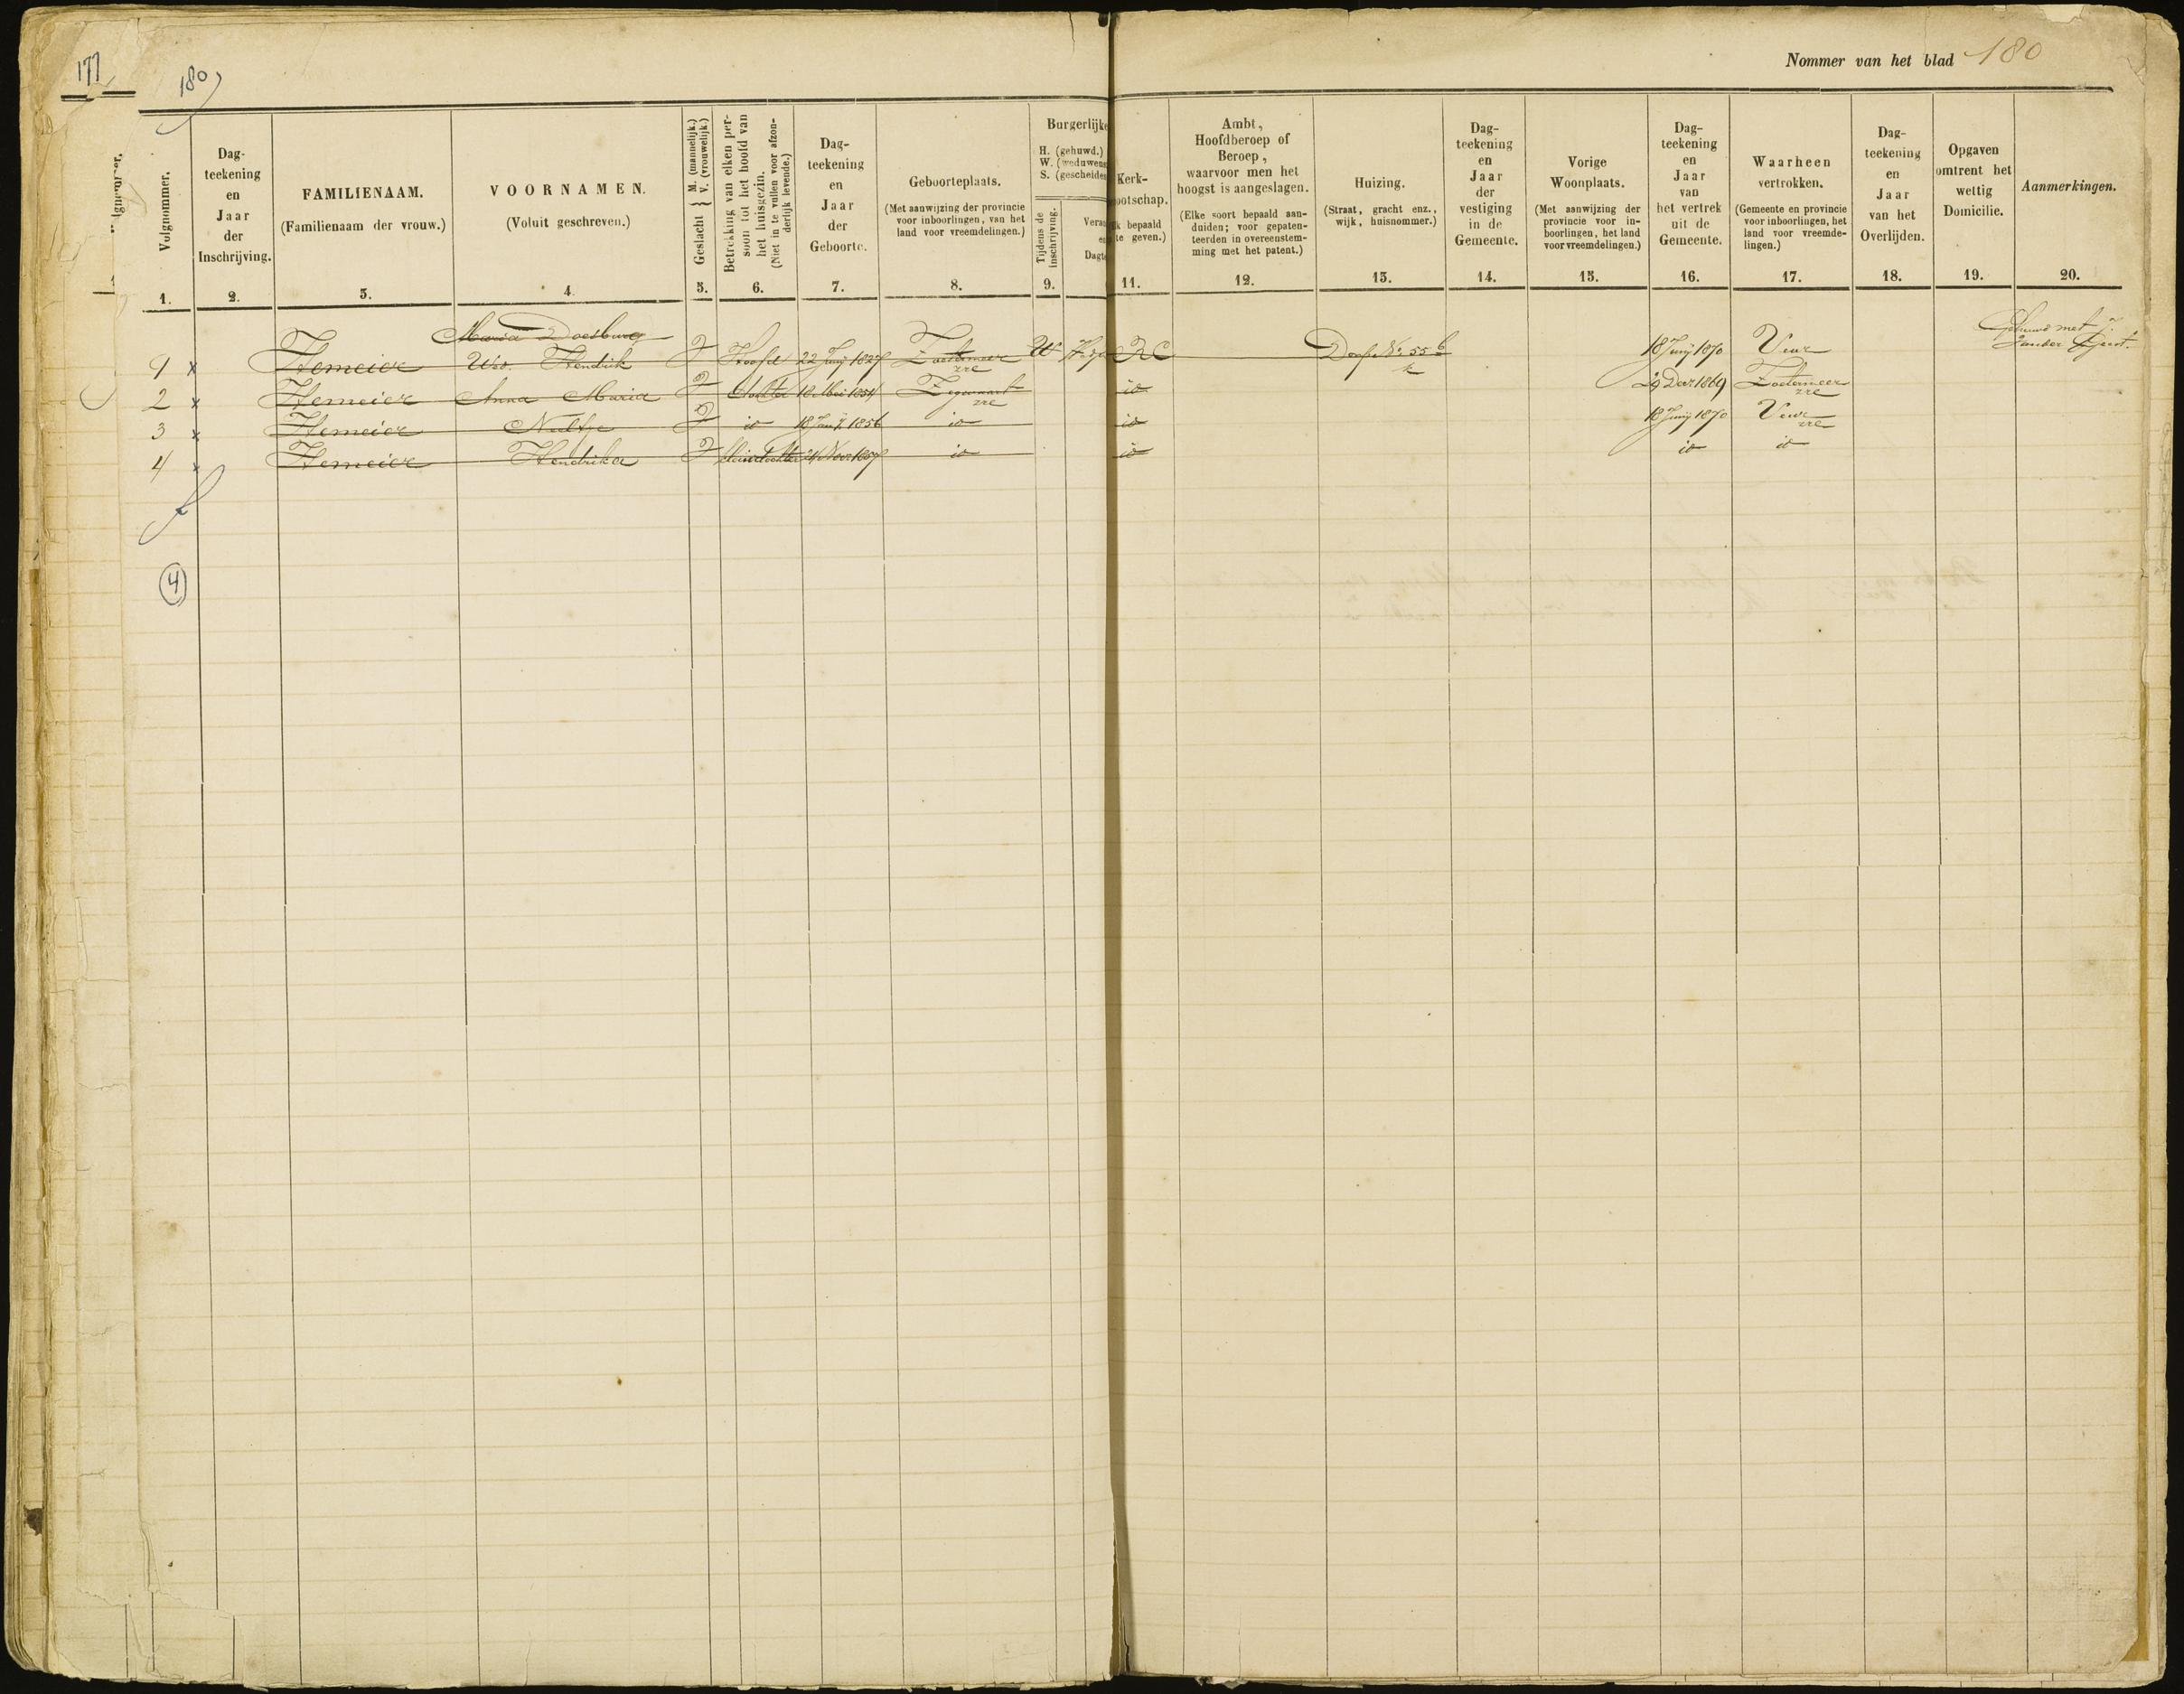 177
180
Nommer van het blad 180
Volgnommer.
Dag-
teekening
en
Jaar
der
Inschrijving.
FAMILIENAAM.
(Familienaam der vrouw.)
VOORNAMEN.
(Voluit geschreven.)
Geslacht { M. (mannelijk.) V. (vrouwelijk)
Betrekking van elken per-
soon tot het hoofd van
het huisgezin.
(Niet in te vullen voor afzon-
derlijk levende.)
Dag-
teekening
en
Jaar
der
Geboorte.
Geboorteplaats.
(Met aanwijzing der provincie
voor inboorlingen, van het
land voor vreemdelingen.)
Burgerlijke
H. (gehuwd.)
W. (weduwen
S. (gescheiden
Tijdens de
inschrijving.
Veran
en
Dagt
Kerk-
ootschap.
k bepaald
te geven.)
Ambt,
Hoofdberoep of
Beroep,
waarvoor men het
hoogst is aangeslagen.
(Elke soort bepaald aan-
duiden; voor gepaten-
teerden in overeenstem-
ming met het patent.)
Huizing.
(Straat, gracht enz.,
wijk, huisnommer.)
Dag-
teekening
en
Jaar
der
vestiging
in de
Gemeente.
Vorige
Woonplaats.
(Met aanwijzing der
provincie voor in-
boorlingen, het land
voor vreemdelingen.)
Dag-
teekening
en
Jaar
van
het vertrek
uit de
Gemeente.
Waarheen
vertrokken.
(Gemeente en provincie
voor inboorlingen, het
land voor vreemde-
lingen.)
Dag-
teekening
en
Jaar
van het
Overlijden.
Opgaven
omtrent het
wettig
Domicilie.
Aanmerkingen.
1. 2. 3. 4. 5. 6. 7. 8. 9. 11. 12. 13. 14. 15. 16. 17. 18. 19. 20.
Maria Doesburg
1 x Hemeier Wed. Hendrik V Hoofd 22 Junij 1827 Zoetermeer W R C Dorp No 55 b 18 Junij 1870 Veur Gehuwd met J.
zre van der Geest.
2 x Hemeier Anna Maria V Dochter 18 Mei 1854 Zegwaart io 29 Dec 1869 Zoetermeer
zre zre
3 x Hemeier Neeltje V io 18 1856 io io 18 Junij 1870 Veur
zre
4 x Hemeier Hendrika V 24 Nov 1857 io io io io
4